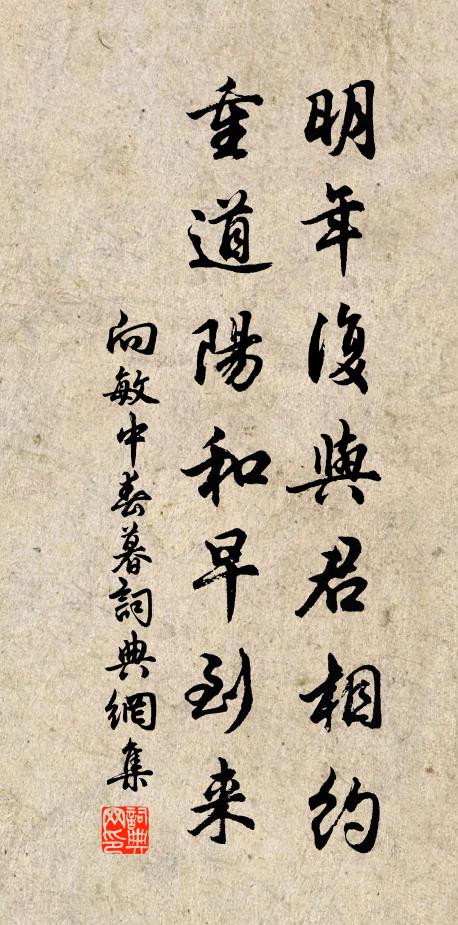 明年復與君相約
重道陽和早到来
向敏中春暮詞典網集
詞典网印